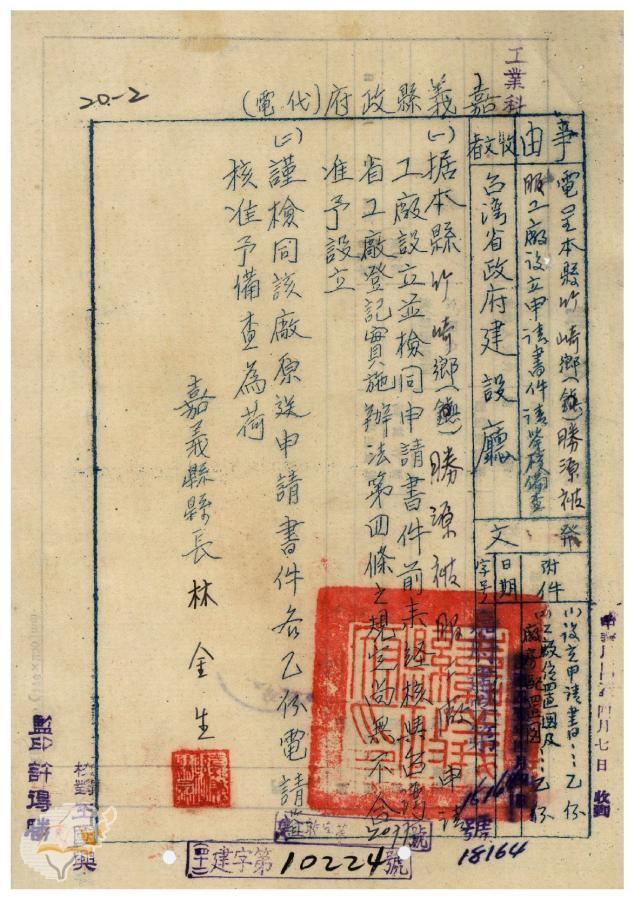 工業科
20-2
嘉義縣政府（代電）
事由
電呈本縣竹崎鄉（鎮）勝源被
服工廠設立申請書件請鑒核備查
收文者
台灣省政府建設廳
發文
附件
(1)設立申請書…乙份
(2)工廠位置圖及
廠房配置圖…乙份
日期
字號
號
18164
(一)據本縣竹崎鄉（鎮）勝源被服工廠申請
工廠設立並檢同申請書件前來經核與台灣
省工廠登記實施辦法第四條之規定尚無不合
准予設立
(二)謹檢同該廠原送申請書件各乙份電請鑒
核准予備查為荷
嘉義縣縣長林金生
月七日 收到
監印 許得勝
校對 王國興
建字第10224號